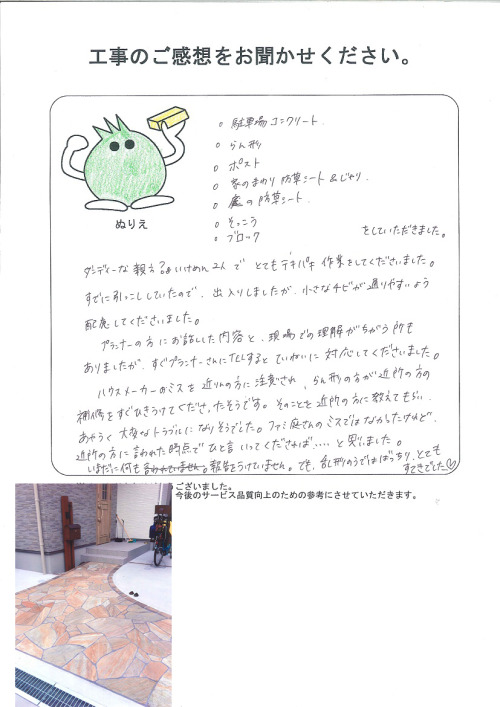 工事のご感想をお聞かせください。
ぬりえ
○ 駐車場コンクリート.
○ らん形
○ ポスト
○ 家のまわり 防草シート & じゃり.
○ 庭の 防草シート.
○ そっこう
○ ブロック
をしていただきました。
ダンディーな親方?&いけめん2人で とてもテキパキ作業をしてくださいました。
すでに引っこししていたので、出入りしましたが、小さなチビが通りやすいよう
配慮してくださいました。
プランナーの方にお話しした内容と、現場での理解がちがう所も
ありましたが、すぐプランナーさんにTELするとていねいに対応してくださいました。
ハウスメーカーのミスを近りんの方に注意され、らん形の方が近所の方の
補修をすぐひきうけてくださったそうです。そのことを近所の方に教えてもらい、
あやうく大変なトラブルになりそうでした。ファミ庭さんのミスではなかったけれど、
近所の方に言われた時点でひと言いってくだされば‥‥と思いました。
いまだに何も 報告をうけていません。でも、乱形のうではばっちり、とても
すてきでした♡
ございました。
今後のサービス品質向上のための参考にさせていただきます。